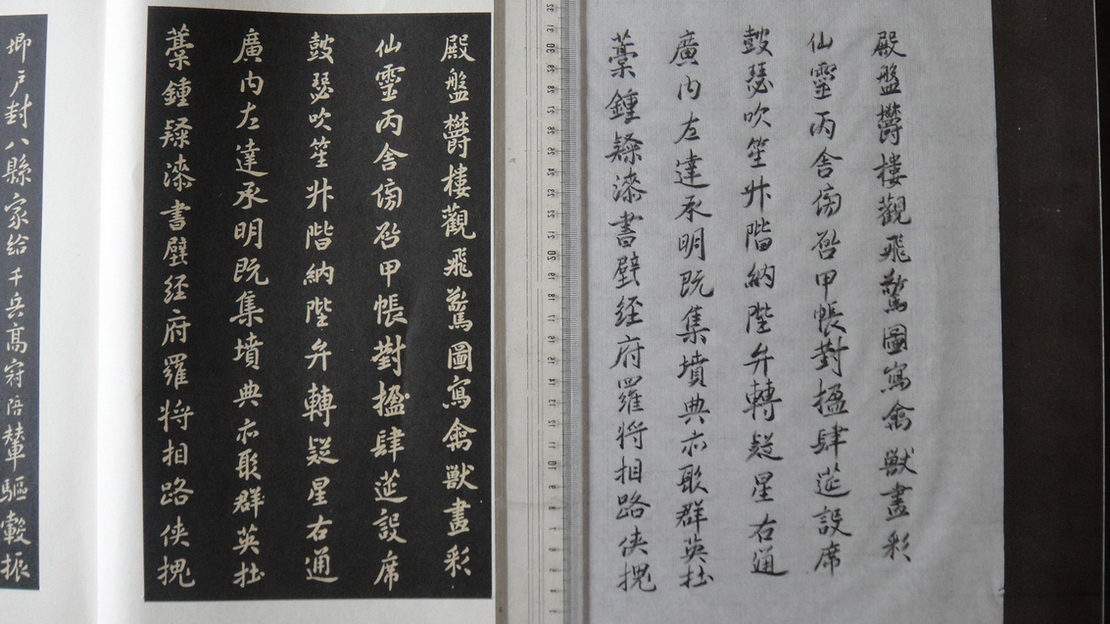 殿盤欝樓觀飛驚圖寫禽獸畫彩
仙靈丙舍傍啓甲帳對楹肆筵設席
鼓瑟吹笙升階納陛弁轉疑星右通
廣内左達承明既集墳典亦聚群英杜
藁鍾隸漆書壁經府羅將相路俠槐
殿盤欝樓觀飛驚圖寫禽獸畫彩
仙靈丙舍傍啓甲帳對楹肆筵設席
鼓瑟吹笙升階納陛弁轉疑星右通
廣内左達承明既集墳典亦聚群英杜
藁鍾隸漆書壁經府羅將相路俠槐
卿戸封八縣家給千兵高冠陪輦驅轂振